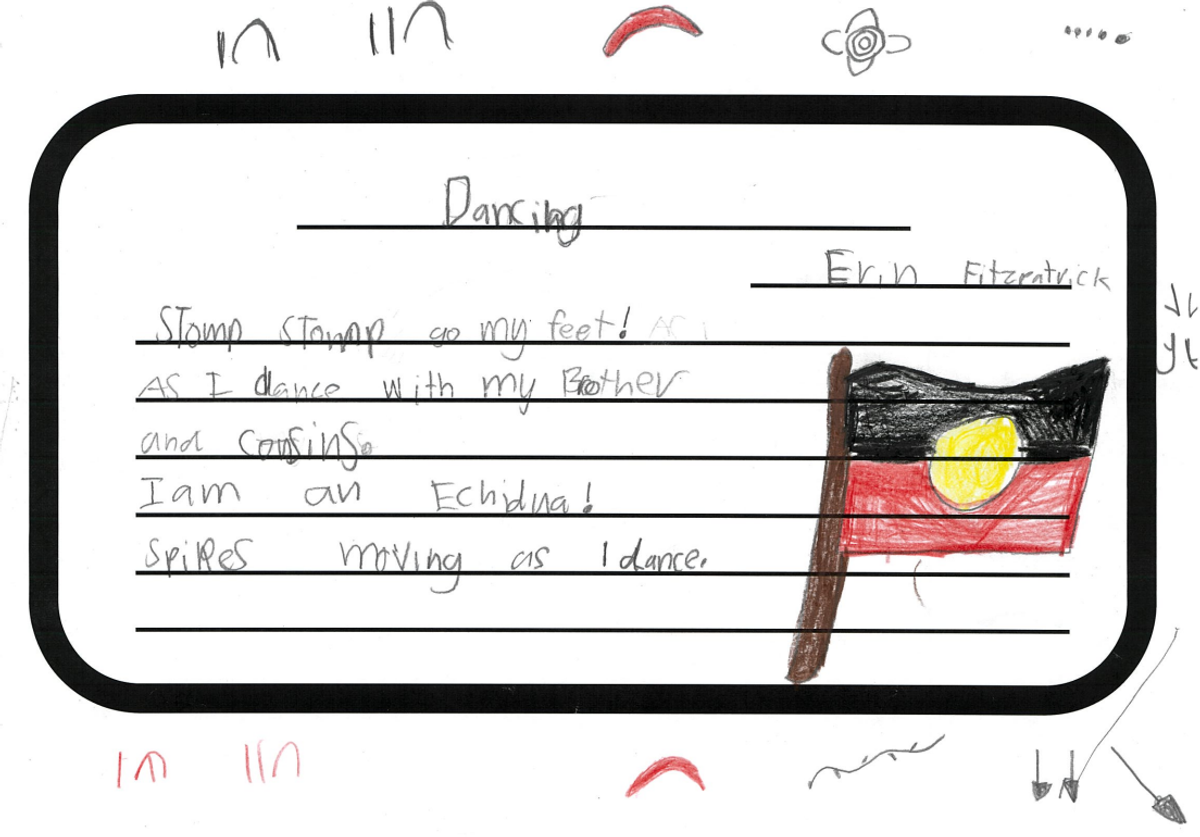 Dancing
Erin Fitzpatrick
Stomp Stomp go my feet!
As I dance with my Brother
and cousins.
I am an Echidna!
spikes moving as I dance.